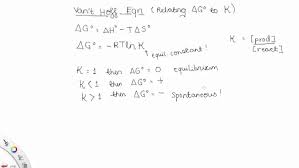 Van't Hoff Eqn (Relating ΔG° to K)
ΔG° = ΔH° - TΔS°
ΔG° = -RTlnK
↑ equil. constant!
K = [prod]
[react]
K = 1 then ΔG° = 0 equilibrium
K < 1 then ΔG° = +
K > 1 then ΔG° = - Spontaneous!